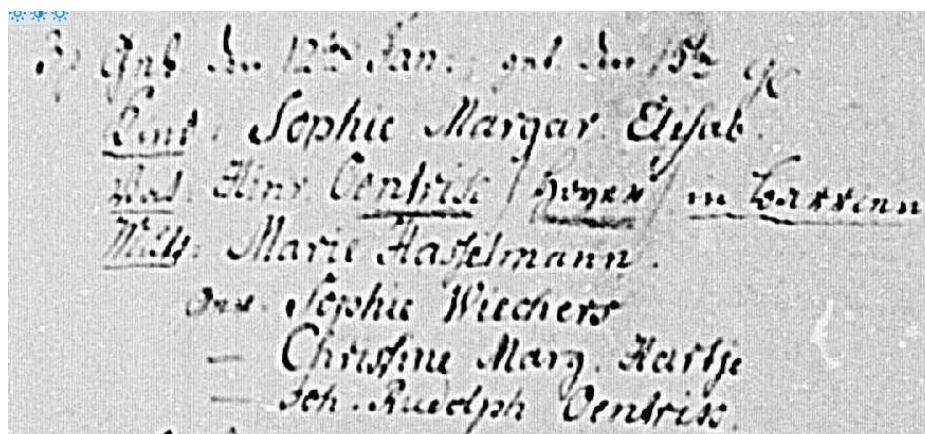 3) Geb. den 12ten Jan., get. den 15ten ej
Kind: Sophie Margar. Elisab.
Vat. Hinr Oentrich / Hoyer / in Barrien
Mutt: Marie Hasselmann.
Gev. Sophie Wiechers
— Christine Marg. Hartje
— Joh. Rudolph Oentrich.